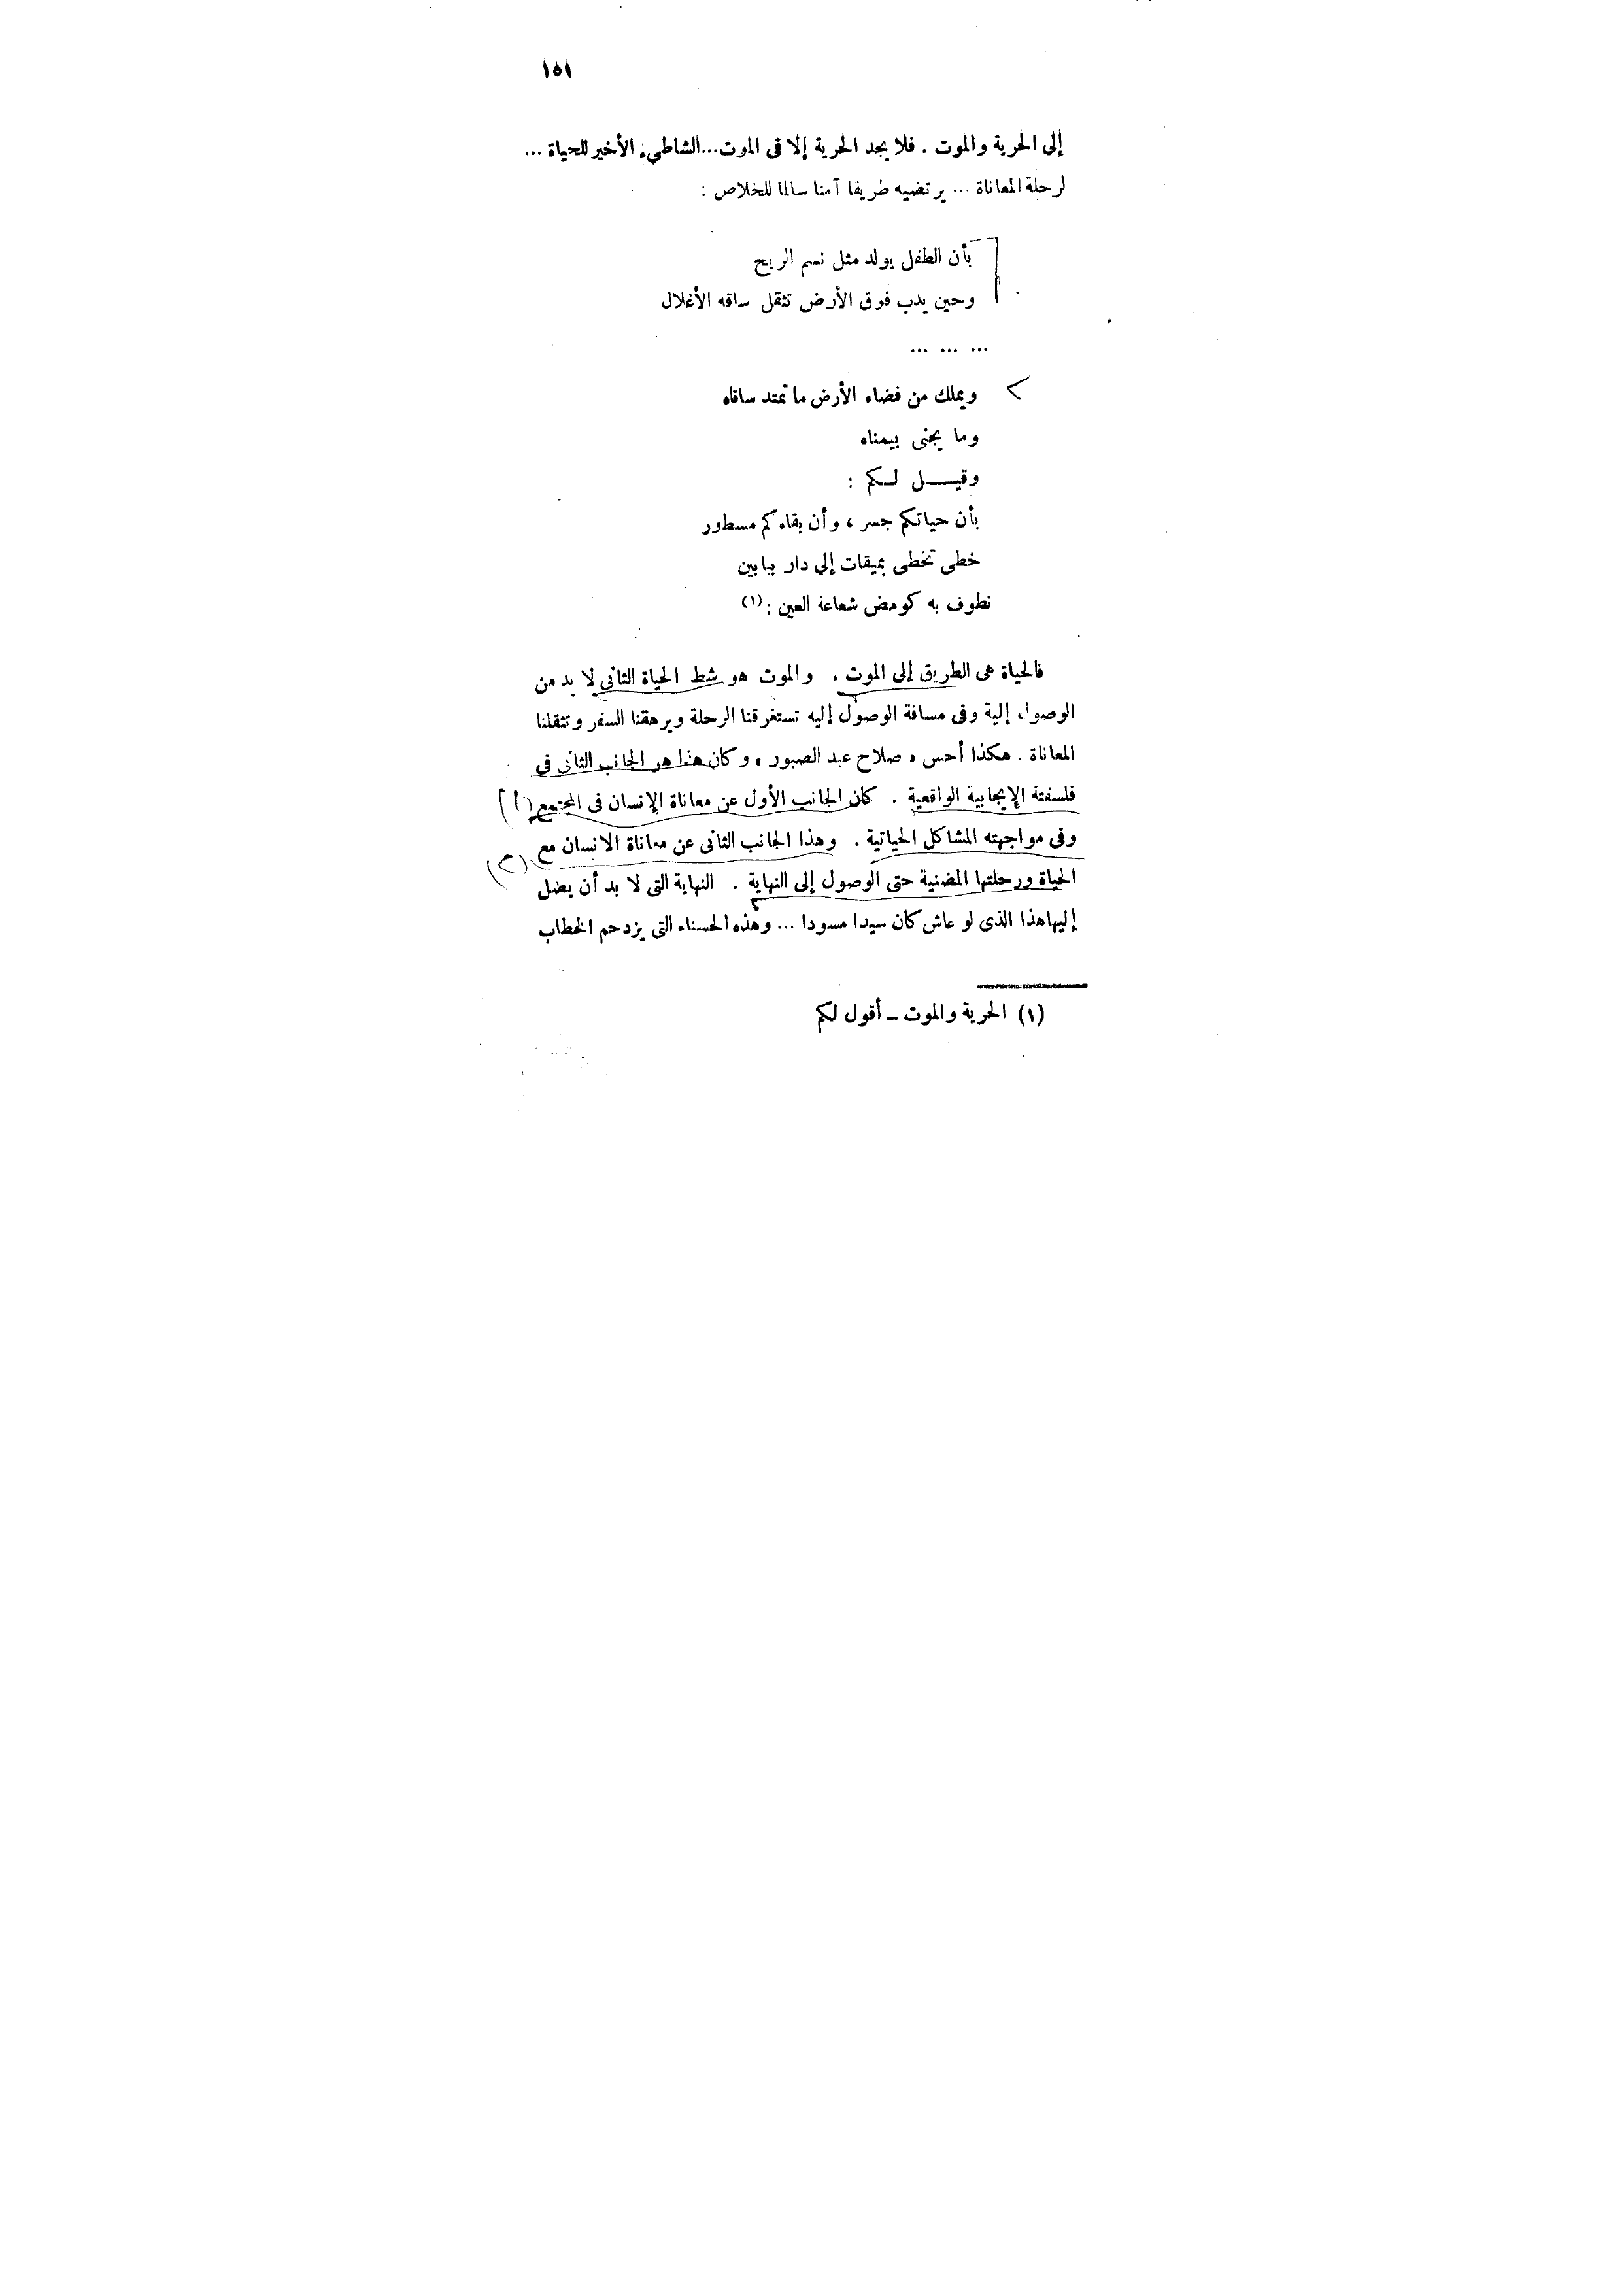 ١٥١
إلى الحرية والموت . فلا يجد الحرية إلا فى الموت...الشاطىء الأخير للحياة ...
لرحلة المعاناة ... يرتضيه طريقا آمنا سالما للخلاص :
بأن الطفل يولد مثل نسم الريح
وحين يدب فوق الأرض تثقل ساقه الأغلال
... ... ...
ويملك من فضاء الأرض ما تمتد ساقاه
وما يجنى بيمناه
وقيــــل لــكم :
بأن حياتكم جسر ، وأن بقاءكم مسطور
خطى تخطى بميقات إلى دار ببابين
نطوف به كومض شعاعة العين : (١)
فالحياة هى الطريق إلى الموت . والموت هو شط الحياة الثانى لا بد من
الوصول إلية وفى مسافة الوصول إليه تستغرقنا الرحلة ويرهقنا السفر وتثقلنا
المعاناة . هكذا أحس « صلاح عبد الصبور » وكان هذا هو الجانب الثانى فى
فلسفته الإيجابية الواقعية . كان الجانب الأول عن معاناة الإنسان فى المجتمع (١)
وفى مواجهته المشاكل الحياتية . وهذا الجانب الثانى عن معاناة الانسان مع (٢)
الحياة ورحلتها المضنية حتى الوصول إلى النهاية . النهاية التى لا بد أن يصل
إليها هذا الذى لو عاش كان سيدا مسودا ... وهذه الحسناء التى يزدحم الخطاب
(١) الحرية والموت – أقول لكم